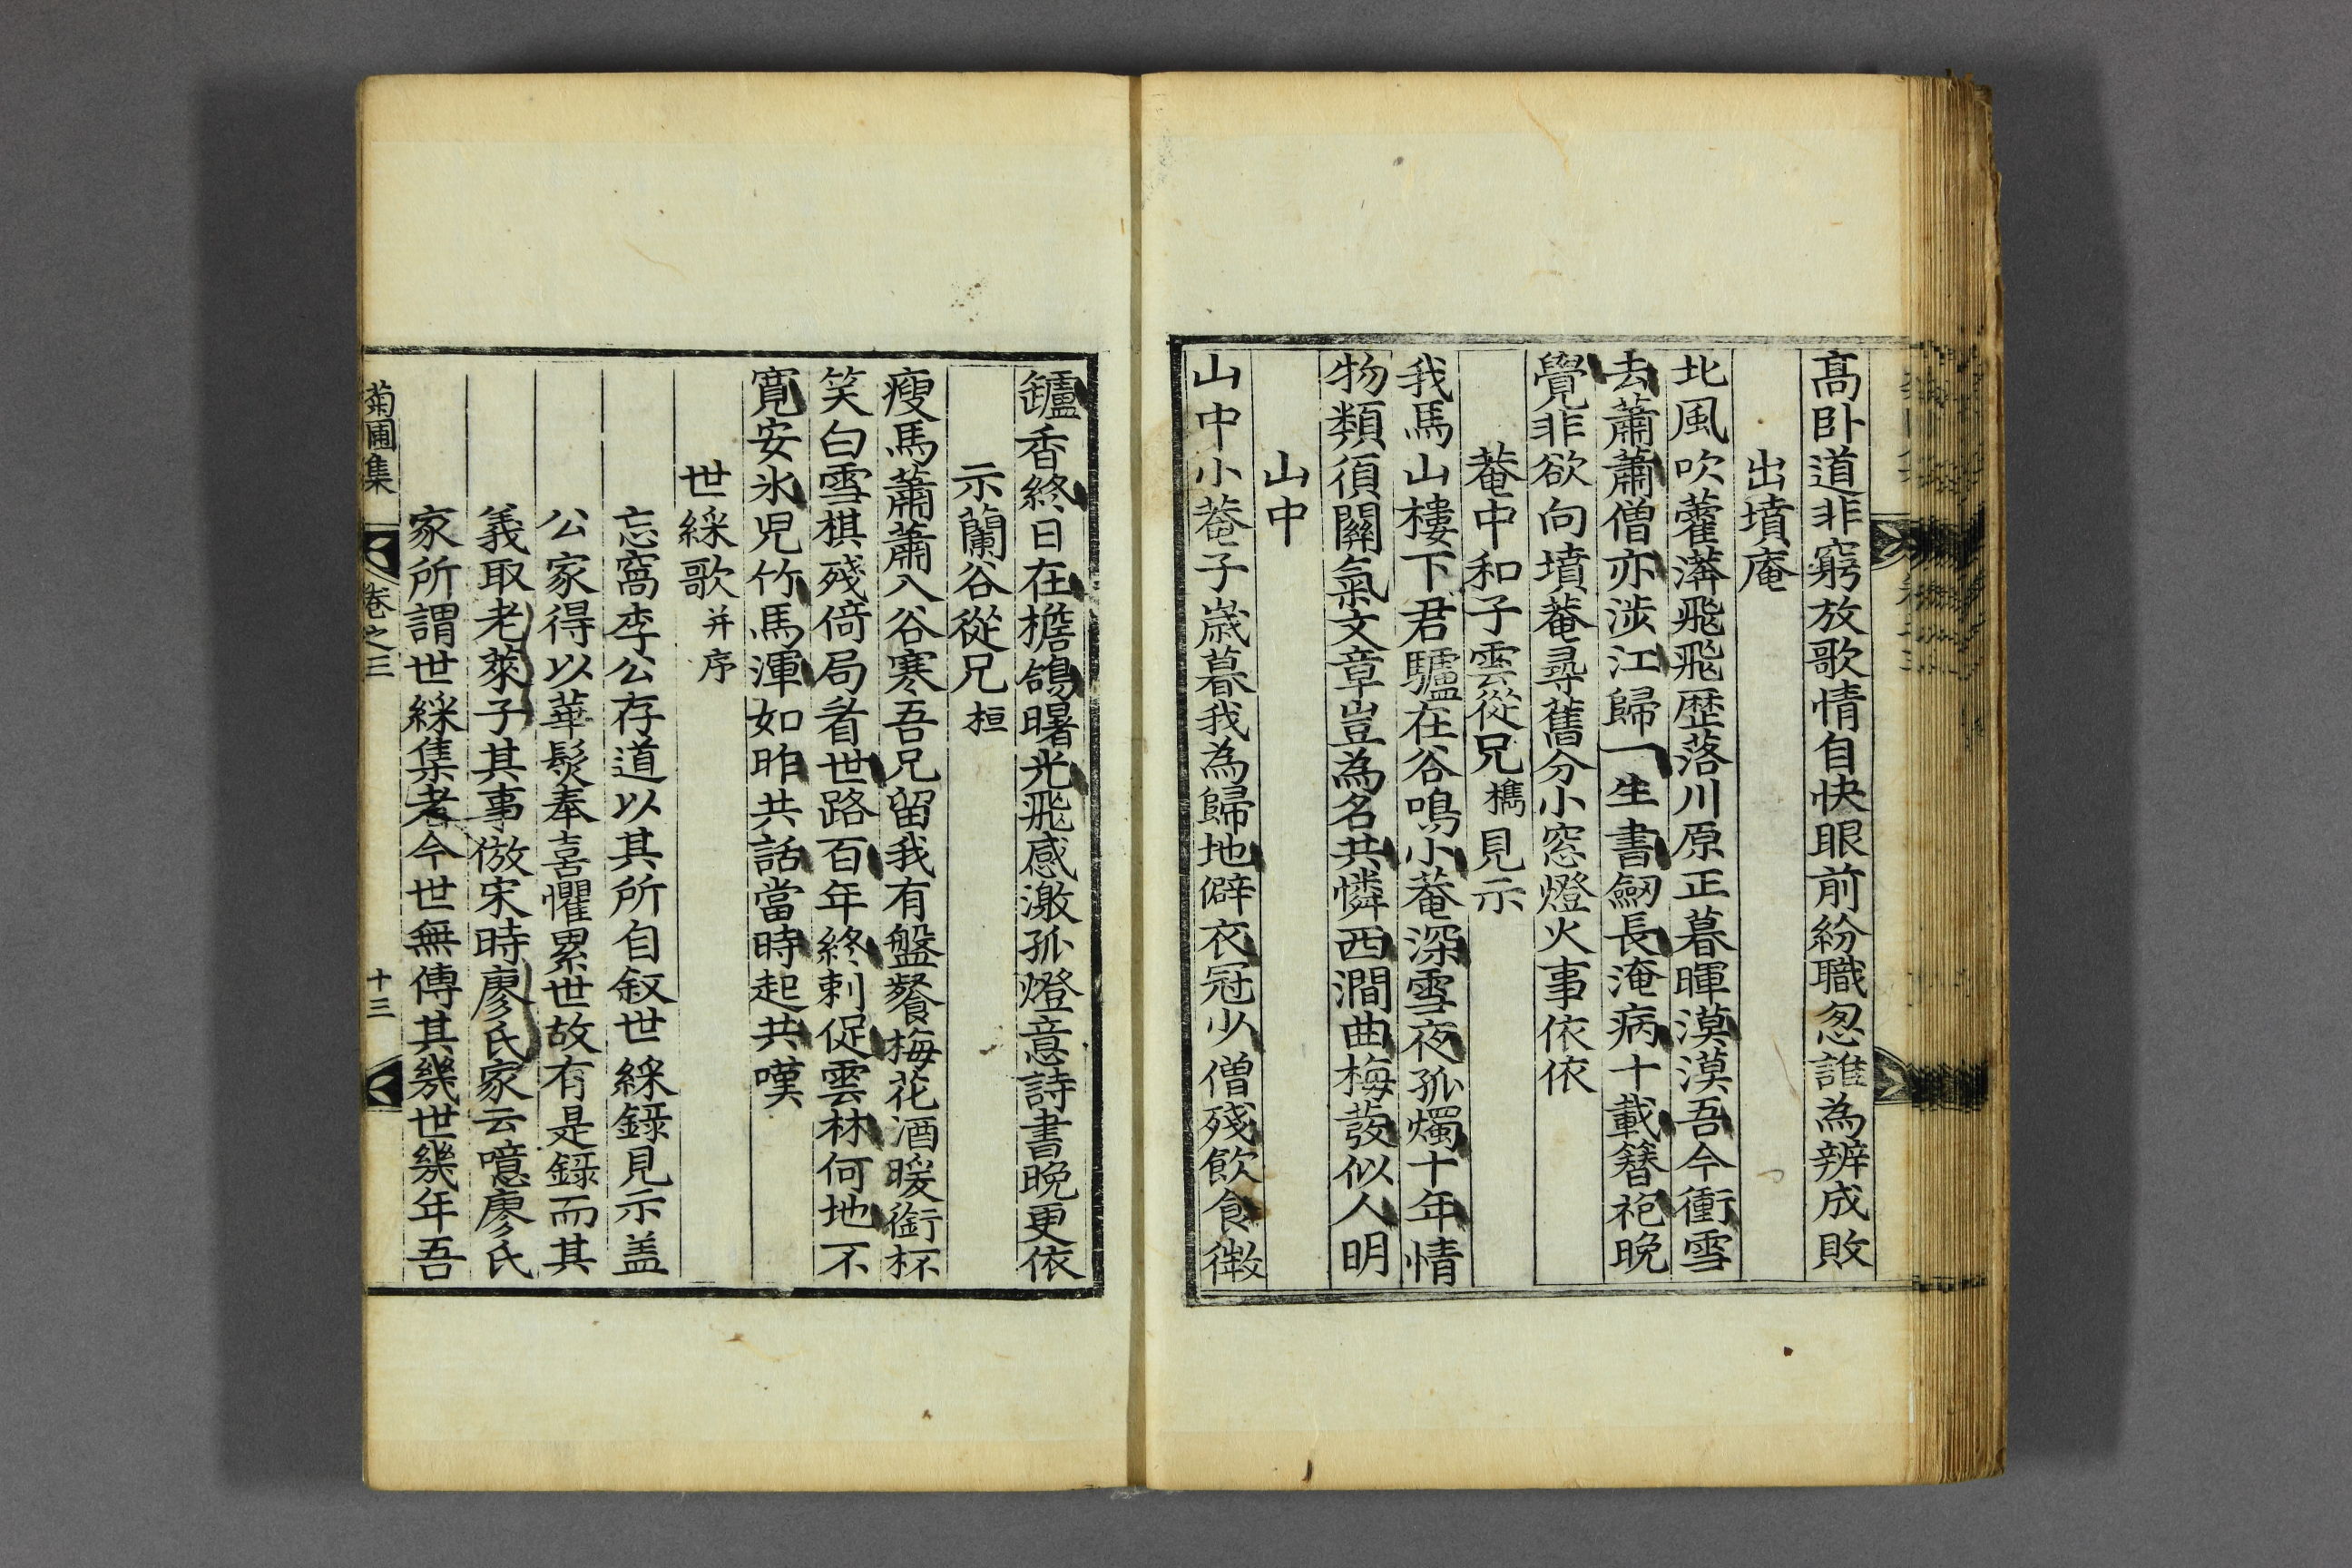 高卧道非窮放歌情自快眼前紛職怱誰為辨成敗
出墳庵
北風吹藿蘺飛飛歷落川原正暮暉漠漠吾今衝雪
去蕭蕭僧亦涉江歸一生書劒長淹病十載簪袍晚
覺非欲向墳菴尋舊分小窓燈火事依依
菴中和子雲從兄檇見示
我馬山樓下君驢在谷鳴小菴深雪夜孤燭十年情
物類須關氣文章豈為名共憐西澗曲梅發似人明
山中
山中小菴子歲暮我為歸地僻衣冠少僧殘飮食微
鑪香終日在檐鴿曙光飛感激孤燈意詩書晚更依
示蘭谷從兄桓
瘦馬蕭蕭入谷寒吾兄留我有盤餐梅花酒暖銜杯
笑白雪棋殘倚局看世路百年終刺促雲林何地不
寬安氷児竹馬渾如昨共話當時起共嘆
世綵歌并序
忘窩李公存道以其所自叙世綵錄見示盖
公家得以華髮奉喜懼累世故有是錄而其
義取老萊子其事倣宋時廖氏家云噫廖氏
家所謂世綵集者今世無傳其幾世幾年吾
菊圃集 卷之三 十三